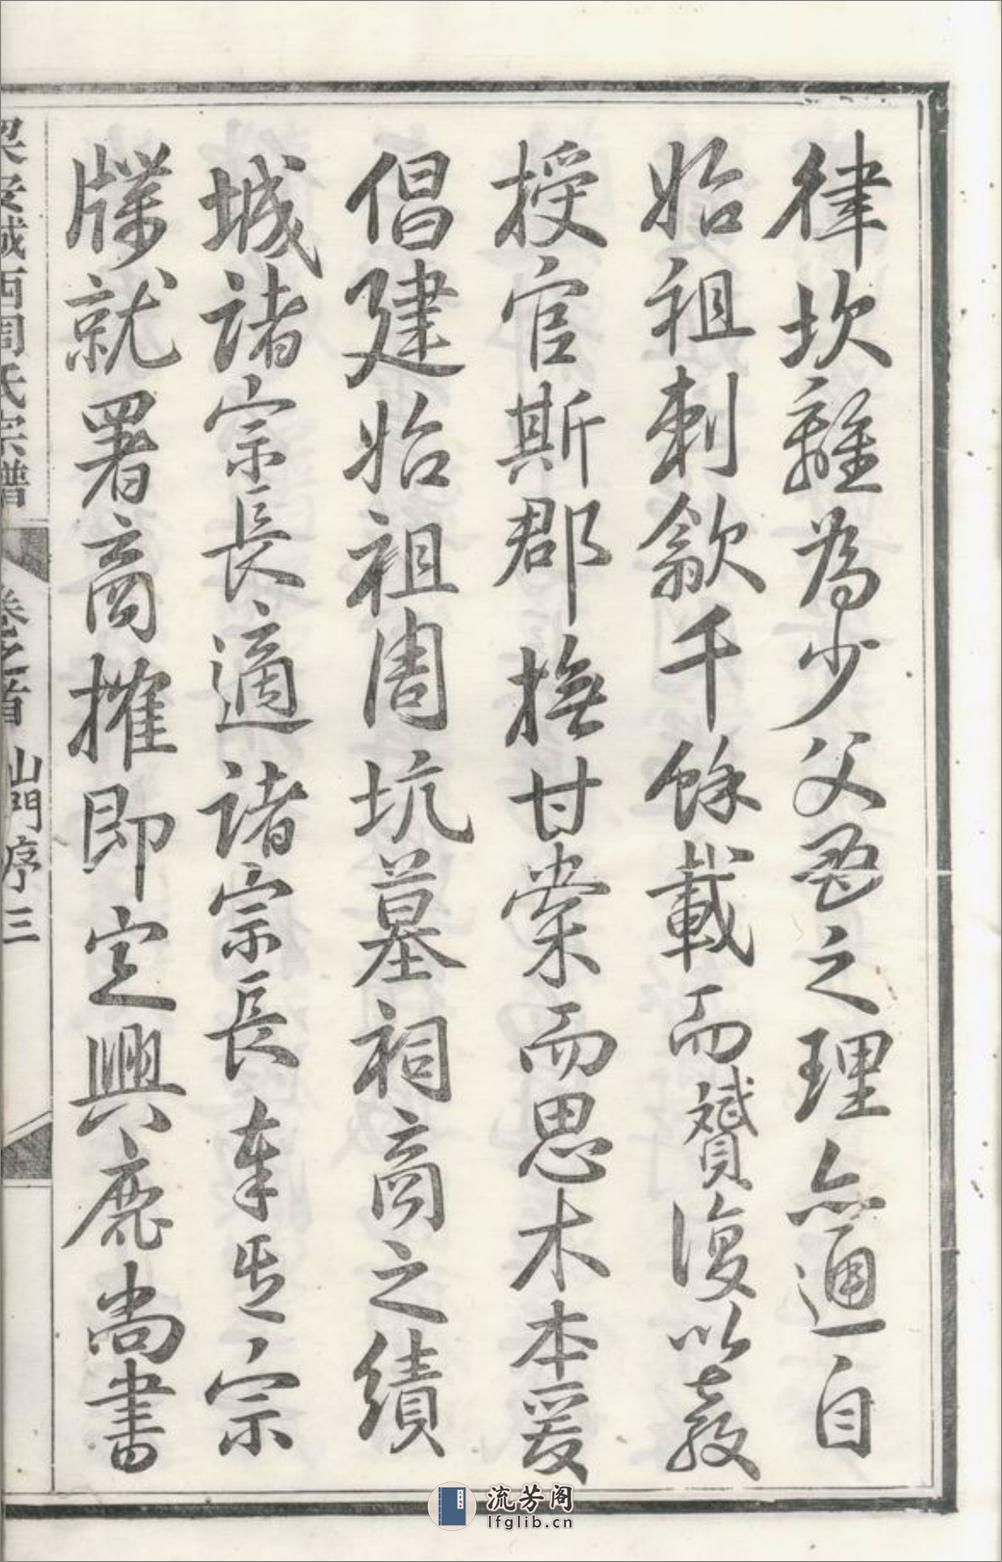 律坎離為少父君之理亦通自
始祖刺歙千餘載而贇復以教
授官斯郡撫甘棠而思木本爰
倡建始祖周坑墓祠商之績
城諸宗長適諸宗長奉其宗
牒就署商搉即定興鹿尚書
梁安城西周氏宗譜
卷之首 山門序 三
流芳阁
lfglib.cn